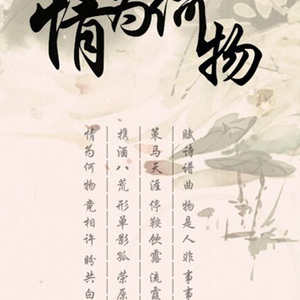 情为何物
赋诗谱曲 物是人非事事
策马天涯 停鞍饮露流霞
携酒八荒 形单影孤荣原
情为何物竟相许盼共白